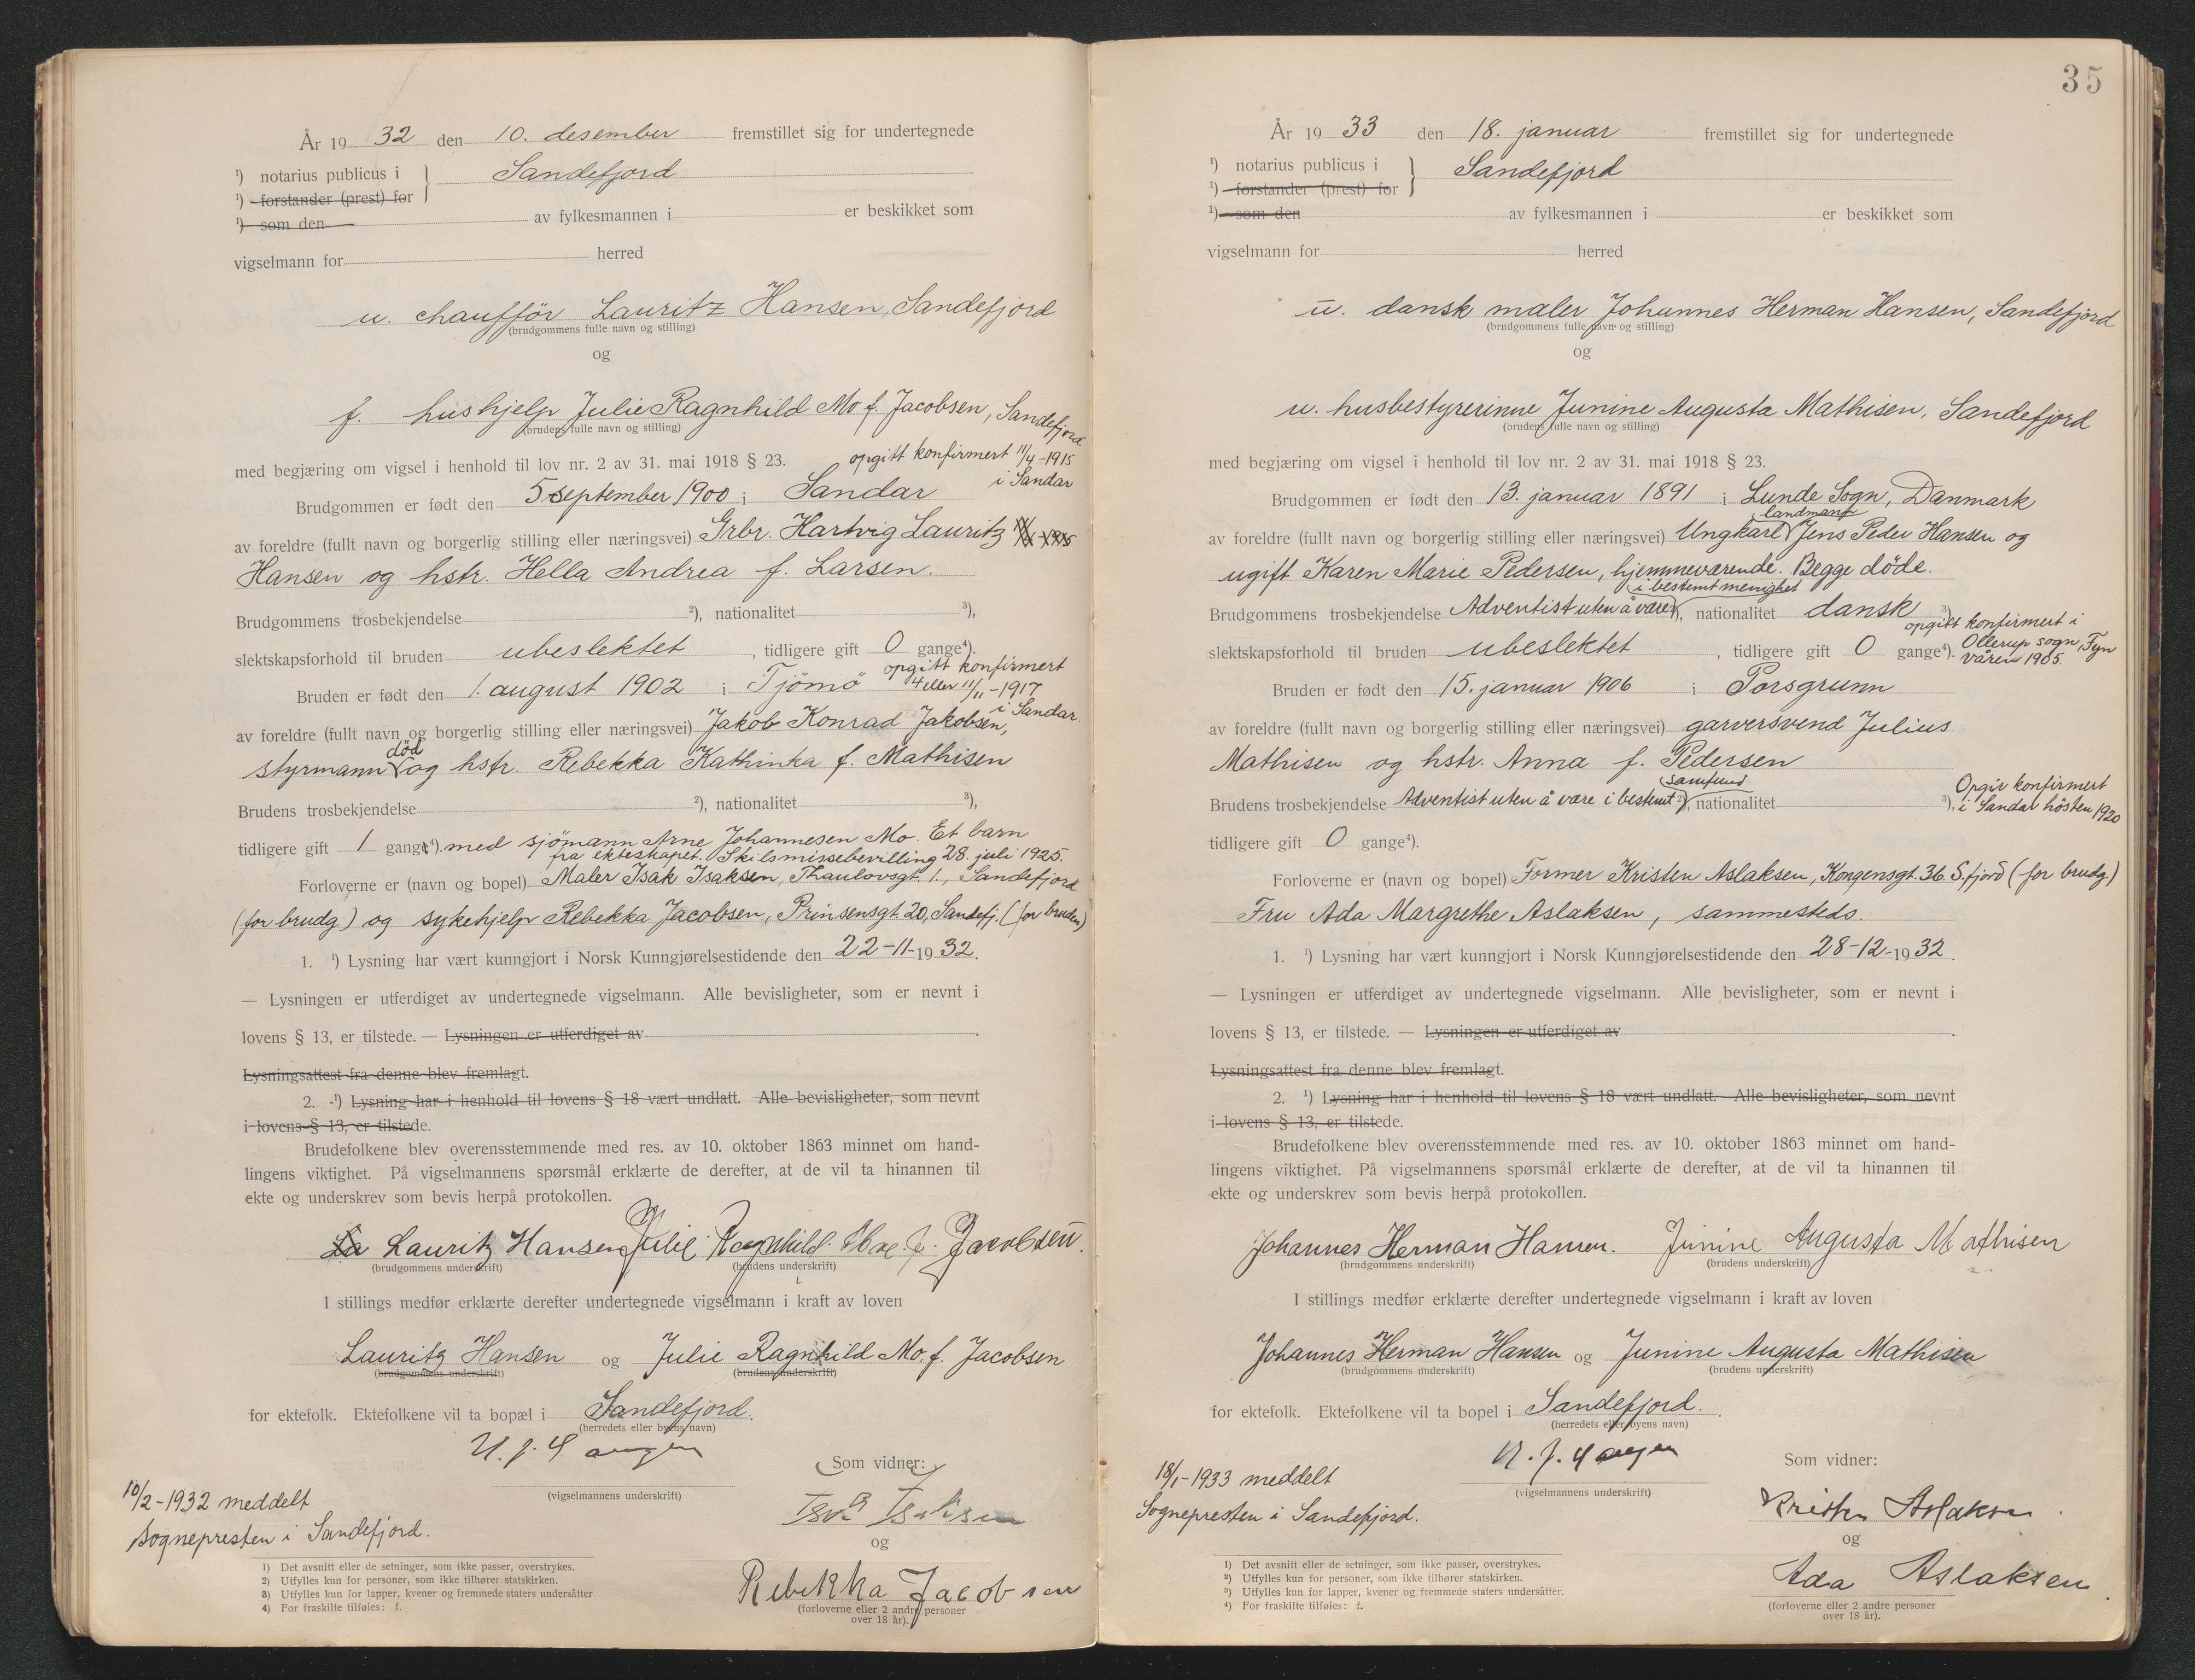 År 19 32 den 10. desember fremstillet sig for undertegnede
¹) notarius publicus i } Sandefjord
¹) forstander (prest) for
¹) som den av fylkesmannen i er beskikket som
vigselmann for herred
u. chaufför Lauritz Hansen, Sandefjord
(brudgommens fulle navn og stilling)
og
f. hushjelp Julie Ragnhild Mo f. Jacobsen, Sandefjord
(brudens fulle navn og stilling)
med begjæring om vigsel i henhold til lov nr. 2 av 31. mai 1918 § 23. opgitt konfirmert 11/4-1915
i Sandar
Brudgommen er født den 5 september 1900 i Sandar
av foreldre (fullt navn og borgerlig stilling eller næringsvei) Grbr. Hartvig Lauritz
Hansen og hstr. Hella Andrea f. Larsen.
Brudgommens trosbekjendelse ²), nationalitet ³),
slektskapsforhold til bruden ubeslektet, tidligere gift 0 gange⁴).
opgitt konfirmert
4 eller 11/11-1917
i Sandar.
Bruden er født den 1. august 1902 i Tjömö
av foreldre (fullt navn og borgerlig stilling eller næringsvei) Jakob Konrad Jakobsen,
død
styrmann og hstr. Rebekka Kathinka f. Mathisen
Brudens trosbekjendelse ²), nationalitet ³),
tidligere gift 1 gange⁴). med sjömann Arne Johannesen Mo. Et barn
fra ekteskapet. Skilsmissebevilling 28. juli 1925.
Forloverne er (navn og bopel) Maler Isak Isaksen, Thaulovsgt. 1., Sandefjord
(for brudg) og sykehjelp Rebekka Jacobsen, Prinsensgt. 20, Sandefj. (for bruden)
1. ¹) Lysning har vært kunngjort i Norsk Kunngjørelsestidende den 22-11-19 32.
— Lysningen er utferdiget av undertegnede vigselmann. Alle bevisligheter, som er nevnt i
lovens § 13, er tilstede. — Lysningen er utferdiget av .
Lysningsattest fra denne blev fremlagt.
2. ¹) Lysning har i henhold til lovens § 18 vært undlatt. Alle bevisligheter, som nevnt
i lovens § 13, er tilstede.
Brudefolkene blev overensstemmende med res. av 10. oktober 1863 minnet om hand-
lingens viktighet. På vigselmannens spørsmål erklærte de derefter, at de vil ta hinannen til
ekte og underskrev som bevis herpå protokollen.
La Lauritz Hansen Julie Ragnhild Moe f. Jacobsen.
(brudgommens underskrift) (brudens underskrift)
I stillings medfør erklærte derefter undertegnede vigselmann i kraft av loven
Lauritz Hansen og Julie Ragnhild Mo. f. Jacobsen
(brudgommens underskrift) (brudens underskrift)
for ektefolk. Ektefolkene vil ta bopæl i Sandefjord.
(herredets eller byens navn)
Som vidner:
(vigselmannens underskrift)
10/2-1932 meddelt
Sognepresten i Sandefjord.
og
Rebekka Jacobsen
(forloverne eller 2 andre personer
over 18 år).
1) Det avsnitt eller de setninger, som ikke passer, overstrykes.
2) Utfylles kun for personer, som ikke tilhører statskirken.
3) Utfylles kun for lapper, kvener og fremmede staters undersåtter
4) For fraskilte tilføies: f.
35
År 19 33 den 18. januar fremstillet sig for undertegnede
¹) notarius publicus i } Sandefjord
¹) forstander (prest) for
¹) som den av fylkesmannen i er beskikket som
vigselmann for herred
u. dansk maler Johannes Herman Hansen, Sandefjord
(brudgommens fulle navn og stilling)
og
u. husbestyrerinne Junine Augusta Mathisen, Sandefjord
(brudens fulle navn og stilling)
med begjæring om vigsel i henhold til lov nr. 2 av 31. mai 1918 § 23.
Brudgommen er født den 13. januar 1891 i Lunde Sogn, Danmark
landmann
av foreldre (fullt navn og borgerlig stilling eller næringsvei) Ungkarl Jens Peder Hansen og
ugift Karen Marie Pedersen, hjemmeværende. Begge döde.
i bestemt menighet
Brudgommens trosbekjendelse Adventist uten å være ²), nationalitet dansk ³),
opgitt konfirmert i
Ollerup sogn, Fyn
våren 1905.
slektskapsforhold til bruden ubeslektet, tidligere gift 0 gange⁴).
Bruden er født den 15. januar 1906 i Porsgrunn
av foreldre (fullt navn og borgerlig stilling eller næringsvei) garversvend Julius
Mathisen og hstr. Anna f. Pedersen
samfund
Brudens trosbekjendelse Adventist uten å være i bestemt ²), nationalitet ³),
Opgir konfirmert
i Sandar hösten 1920
tidligere gift 0 gange⁴).
Forloverne er (navn og bopel) Former Kristen Aslaksen, Kongensgt. 36. S.fjord (for brudg.)
Fru Ada Margrethe Aslaksen, sammesteds.
1. ¹) Lysning har vært kunngjort i Norsk Kunngjørelsestidende den 28-12-19 32.
— Lysningen er utferdiget av undertegnede vigselmann. Alle bevisligheter, som er nevnt i
lovens § 13, er tilstede. — Lysningen er utferdiget av .
Lysningsattest fra denne blev fremlagt.
2. ¹) Lysning har i henhold til lovens § 18 vært undlatt. Alle bevisligheter, som nevnt
i lovens § 13, er tilstede.
Brudefolkene blev overensstemmende med res. av 10. oktober 1863 minnet om hand-
lingens viktighet. På vigselmannens spørsmål erklærte de derefter, at de vil ta hinannen til
ekte og underskrev som bevis herpå protokollen.
Johannes Herman Hansen. Junine Augusta Mathisen
(brudgommens underskrift) (brudens underskrift)
I stillings medfør erklærte derefter undertegnede vigselmann i kraft av loven
Johannes Herman Hansen og Junine Augusta Mathisen
(brudgommens underskrift) (brudens underskrift)
for ektefolk. Ektefolkene vil ta bopel i Sandefjord.
(herredets eller byens navn)
Som vidner:
(vigselmannens underskrift)
18/1-1933 meddelt
Sognepresten i Sandefjord.
Kristen Aslaksen
og
Ada Aslaksen
(forloverne eller 2 andre personer
over 18 år).
1) Det avsnitt eller de setninger, som ikke passer, overstrykes.
2) Utfylles kun for personer, som ikke tilhører statskirken.
3) Utfylles kun for lapper, kvener og fremmede staters undersåtter.
4) For fraskilte tilføies: f.